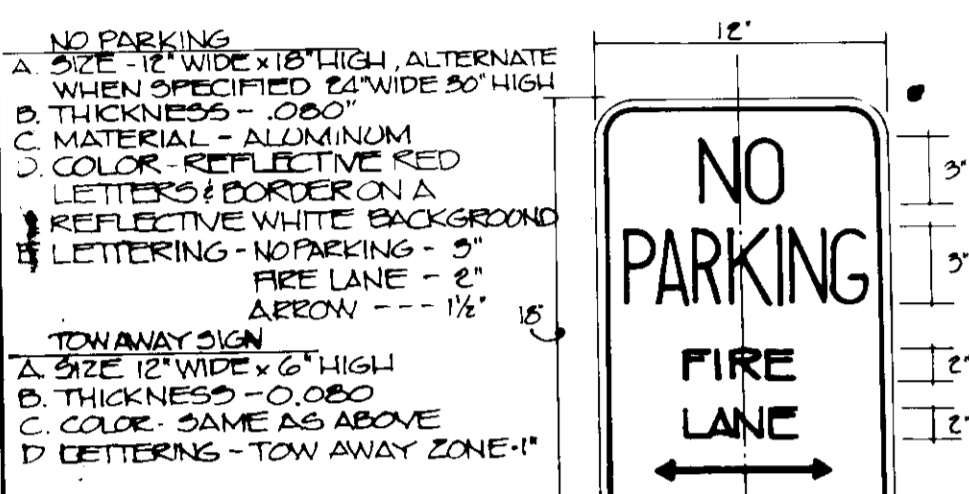 NO PARKING
A. SIZE - 12" WIDE x 18" HIGH, ALTERNATE
WHEN SPECIFIED 24" WIDE 30" HIGH
B. THICKNESS - .080"
C. MATERIAL - ALUMINUM
D. COLOR - REFLECTIVE RED
LETTERS & BORDER ON A
REFLECTIVE WHITE BACKGROUND
E LETTERING - NO PARKING - 3"
FIRE LANE - 2"
ARROW --- 1½"
TOW AWAY SIGN
A. SIZE 12" WIDE x 6" HIGH
B. THICKNESS - 0.080
C. COLOR - SAME AS ABOVE
D LETTERING - TOW AWAY ZONE - 1"
12"
18"
NO
PARKING
FIRE
LANE
3"
3"
2"
2"